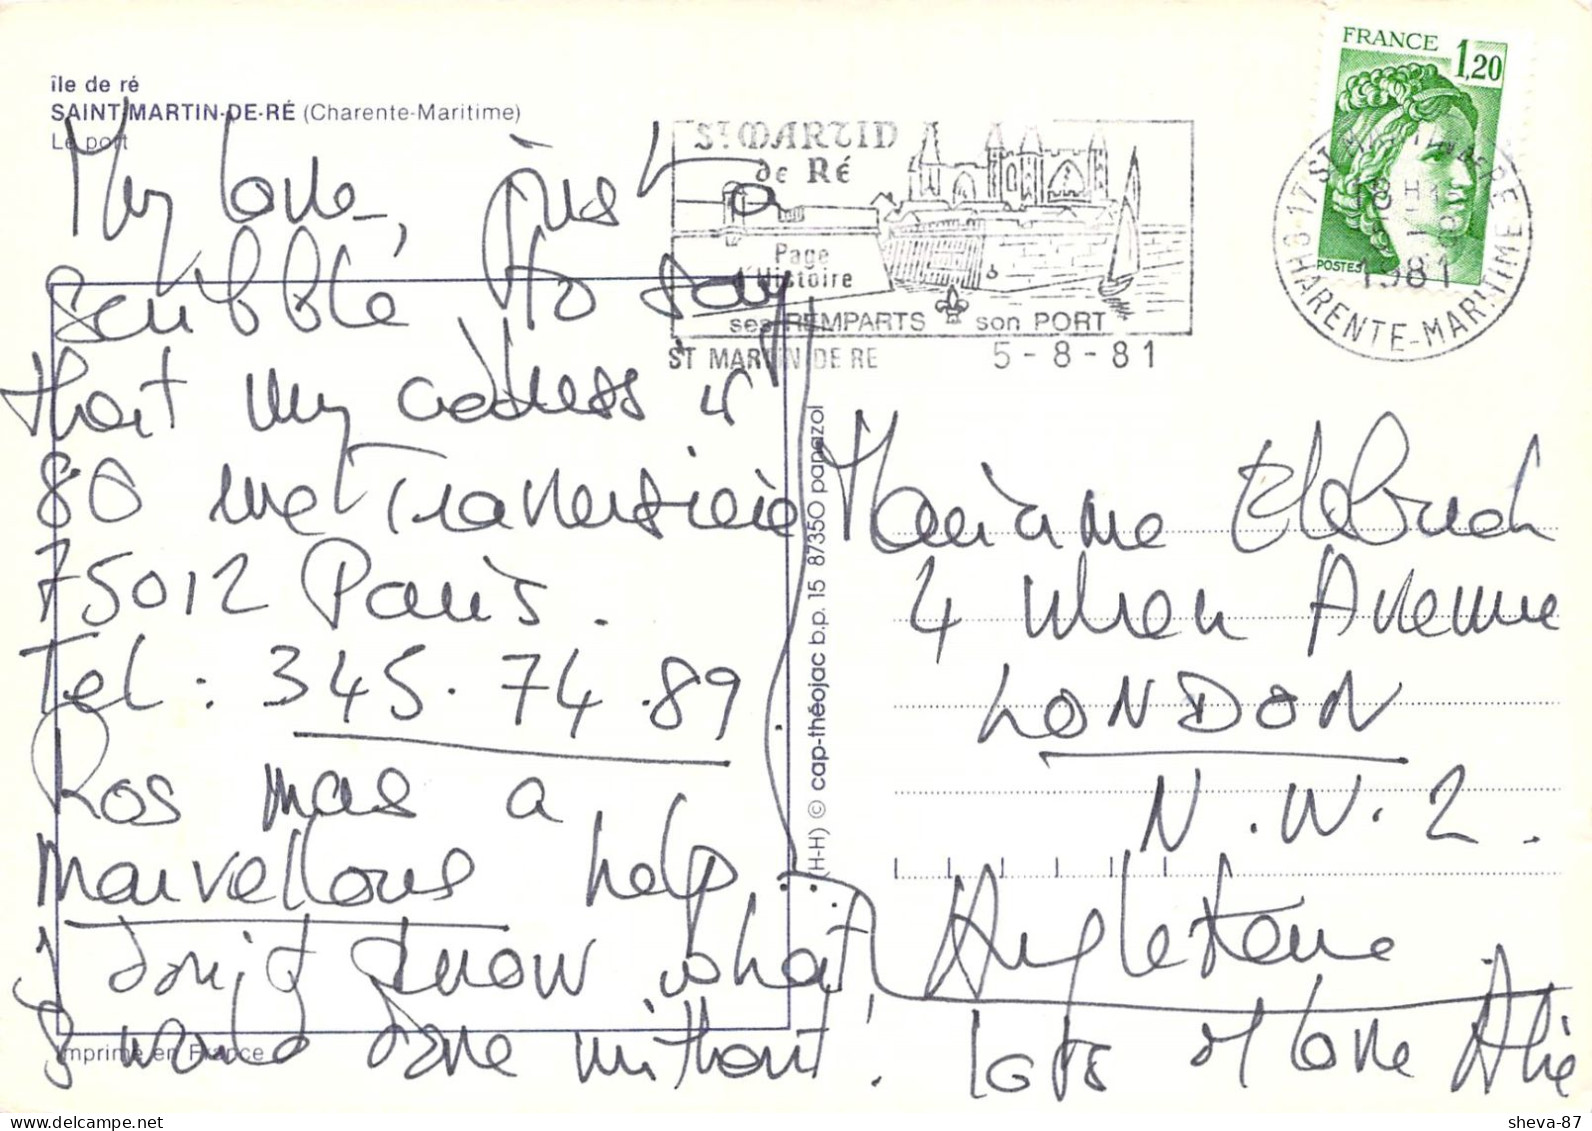 île de ré
SAINT-MARTIN-DE-RÉ (Charente-Maritime)
Le port
My love, just a
scribble to say
that my address is
80 rue Traversière
75012 Paris.
Tel: 345.74.89
Ros was a
marvellous help
I don't know what
I would done without!
Imprimé en France
ST MARTIN
de RÉ
Page
d'Histoire
ses REMPARTS son PORT
ST MARTIN DE RE 5-8-81
FRANCE 1,20
POSTES
17 ST MARTIN DE RE
18H
5-8
1981
CHARENTE-MARITIME
(H-H) © cap-théojac b.p. 15 87350 panazol
Marianne
4 Avenue
LONDON
N.W.2.
Angleterre
lots of love
sheva-87